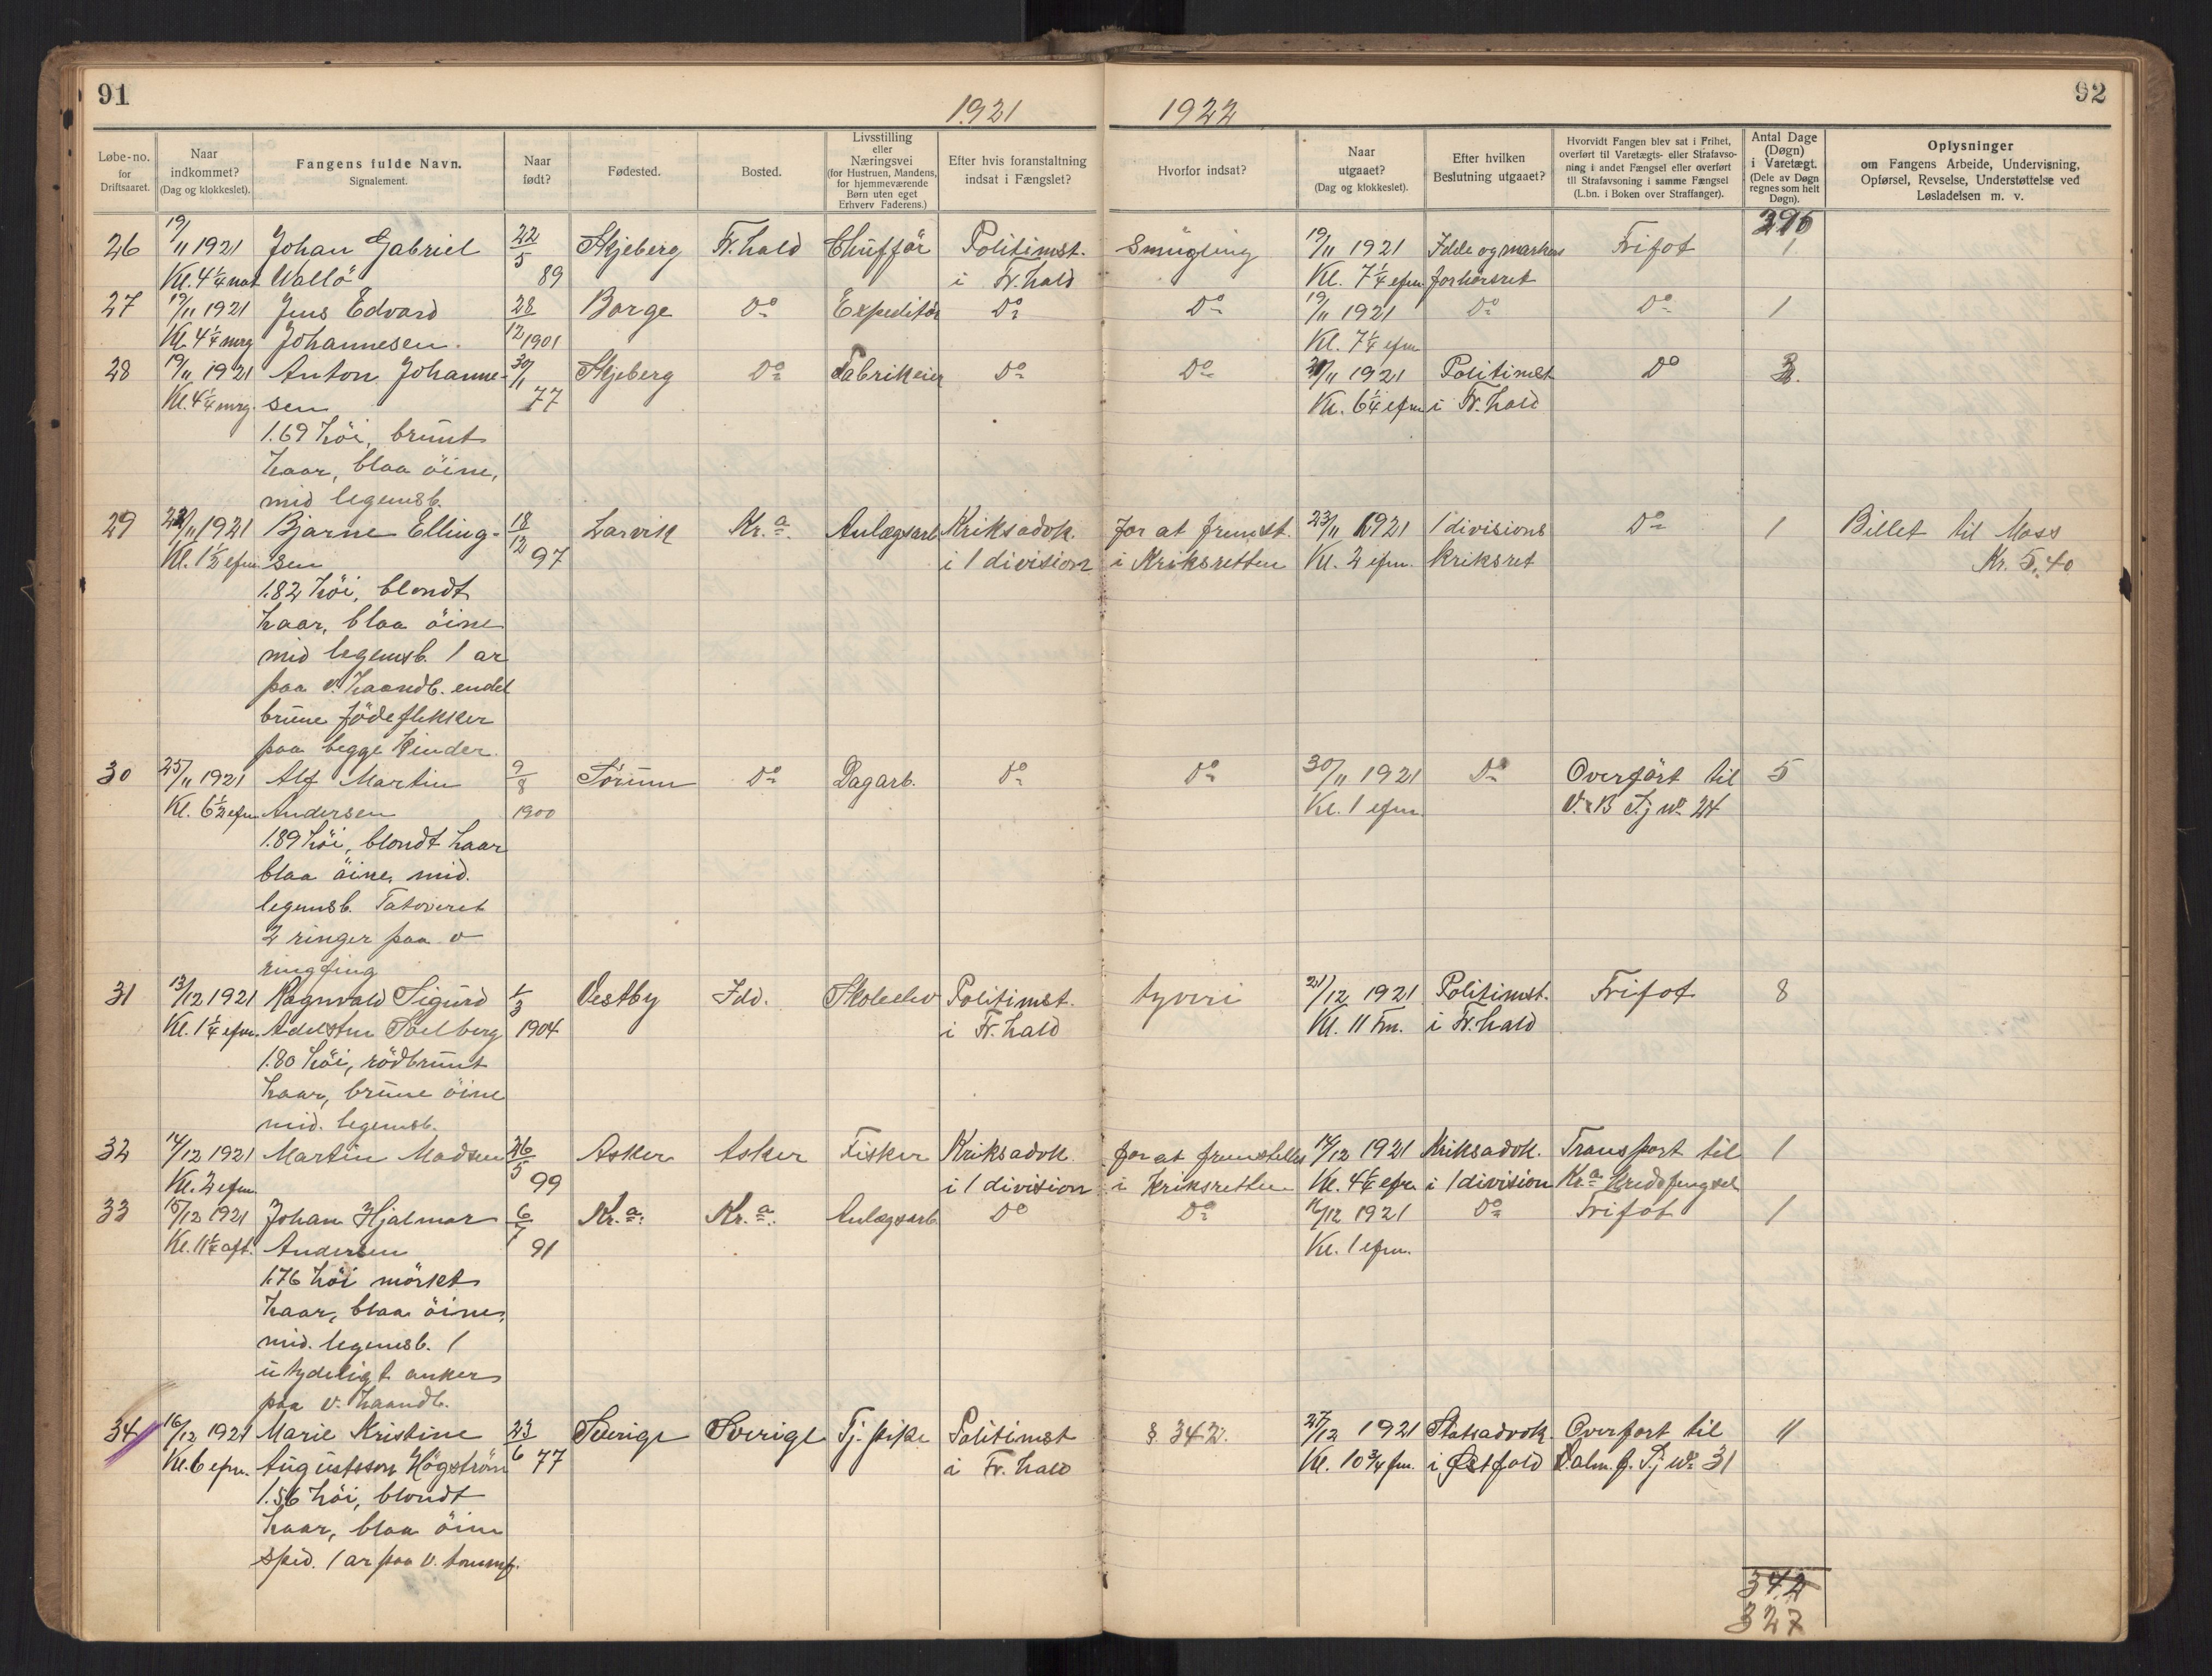 91
1921
1922
92
Løbe-no. for Driftsaaret.
Naar indkommet? (Dag og klokkeslet).
Fangens fulde Navn. Signalement.
Naar født?
Fødested.
Bosted.
Livsstilling eller Næringsvei (for Hustruen, Mandens, for hjemmeværende Børn uten eget Erhverv Faderens.)
Efter hvis foranstaltning indsat i Fængslet?
Hvorfor indsat?
Naar utgaaet? (Dag og klokkeslet).
Efter hvilken Beslutning utgaaet?
Hvorvidt Fangen blev sat i Frihet, overført til Varetægts- eller Strafavsoning i andet Fængsel eller overført til Strafavsoning i samme Fængsel (L.bn. i Boken over Straffanger).
Antal Dage (Døgn) i Varetægt. (Dele av Døgn regnes som helt Døgn).
Oplysninger om Fangens Arbeide, Undervisning, Opførsel, Revselse, Understøttelse ved Løsladelsen m. v.
296
26 19/11 1921 Johan Gabriel 22/5 Skjeberg Fr.hald Chufför Politimst. Smugling 19/11 1921 Idde og markers Frifot 1.
Kl. 4 1/4 nat Wallö 89 i Fr.hald Kl. 7 1/4 efm. forhørsret
27 19/11 1921 Jens Edvard 28 Borge Do Expeditör Do Do 19/11 1921 Do Do 1
Kl. 4 1/4 mrg Johannesen. 12 1901 Kl. 7 1/4 efm
28 19/11 1921 Anton Johanne- 30/11 Skjeberg Do Fabrikeier Do Do /11 1921 Politimst Do
Kl. 4 1/4 mrg. sen 77 Kl. 6 1/4 efm i Fr.hald
1.69 höi, brunt
haar, blaa öine,
mid legemsb.
29 /11 1921 Bjarne Elling- 18/12 Larvik Kr.a. Anlægsarb. Kriksadvok. for at fremst. 23/11 1921 1 divisions Do 1 Billet til Moss
Kl. 1 1/2 efm. sen 97 i 1 division i Kriksretten Kl. 2 efm. kriksret Kr. 5.40
1.82 höi, blondt
haar, blaa öine
mid legemsb. 1 ar
paa v. haandb. endel
brune födeflekker
paa begge kinder.
30 25/11 1921 Alf Martin 9/8 Sörum Do Dagarb. Do Do 30/11 1921 Do Overfört til 5
Kl. 6 1/2 efm. Andersen 1900 Kl. 1 efm. V. B Fj No 24
1.89 höi, blondt haar
blaa öine, mid.
legemsb. Tatoveret
2 ringer paa v
ringfing
31 13/12 1921 Ragnvald Sigurd 1/3 Vestby Idd. Skoleelev Politimst. tyveri 21/12 1921 Politimst. Frifot 8
Kl. 1 1/4 efm. Adelsten Solberg 1904 i Fr.hald Kl. 11 Fm. i Fr.hald
1.80 höi, rödbrunt
haar, brune öine
mid. legemsb.
32 14/12 1921 Martin Madsen 26/5 Asker Asker Fisker Kriksadvok. for at fremstilles 14/12 1921 Kriksadvok. Transport til 1
Kl. 2 efm. 99 i 1 division i Kriksretten Kl. 4 1/4 efm i 1 division Kr.a Kredsfengsel
33 15/12 1921 Johan Hjalmar 6/7 Kr.a. Kr.a. Anlægsarb. Do Do 16/12 1921 Do Frifot 1
Kl. 11 1/4 aft. Andersen 91 Kl. 1 efm.
1.76 höi mörket
haar, blaa öine,
mid. legemsb. 1
utydeligt anker
paa v. haandb.
34 16/12 1921 Marie Kristine 23/6 Sverige Sverige Tj. pike Politimst § 342. 27/12 1921 Statsadvok. Overfört til 11
Kl. 6 efm. Augustsson Högström 77 i Fr.hald Kl. 10 3/4 fm. i Østfold alm. f. Fj No 31
1.56 höi, blondt
haar, blaa öine
sped. 1 ar paa v. tommelf.
342
327